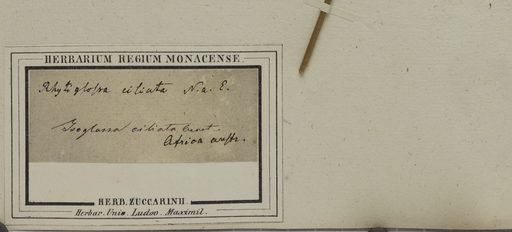 HERBARIUM REGIUM MONACENSE.
Rhytiglossa ciliata N. a. E.
Isoglossa ciliata
Africa austr.
HERB. ZUCCARINII.
Herbar. Univ. Ludov. Maximil.